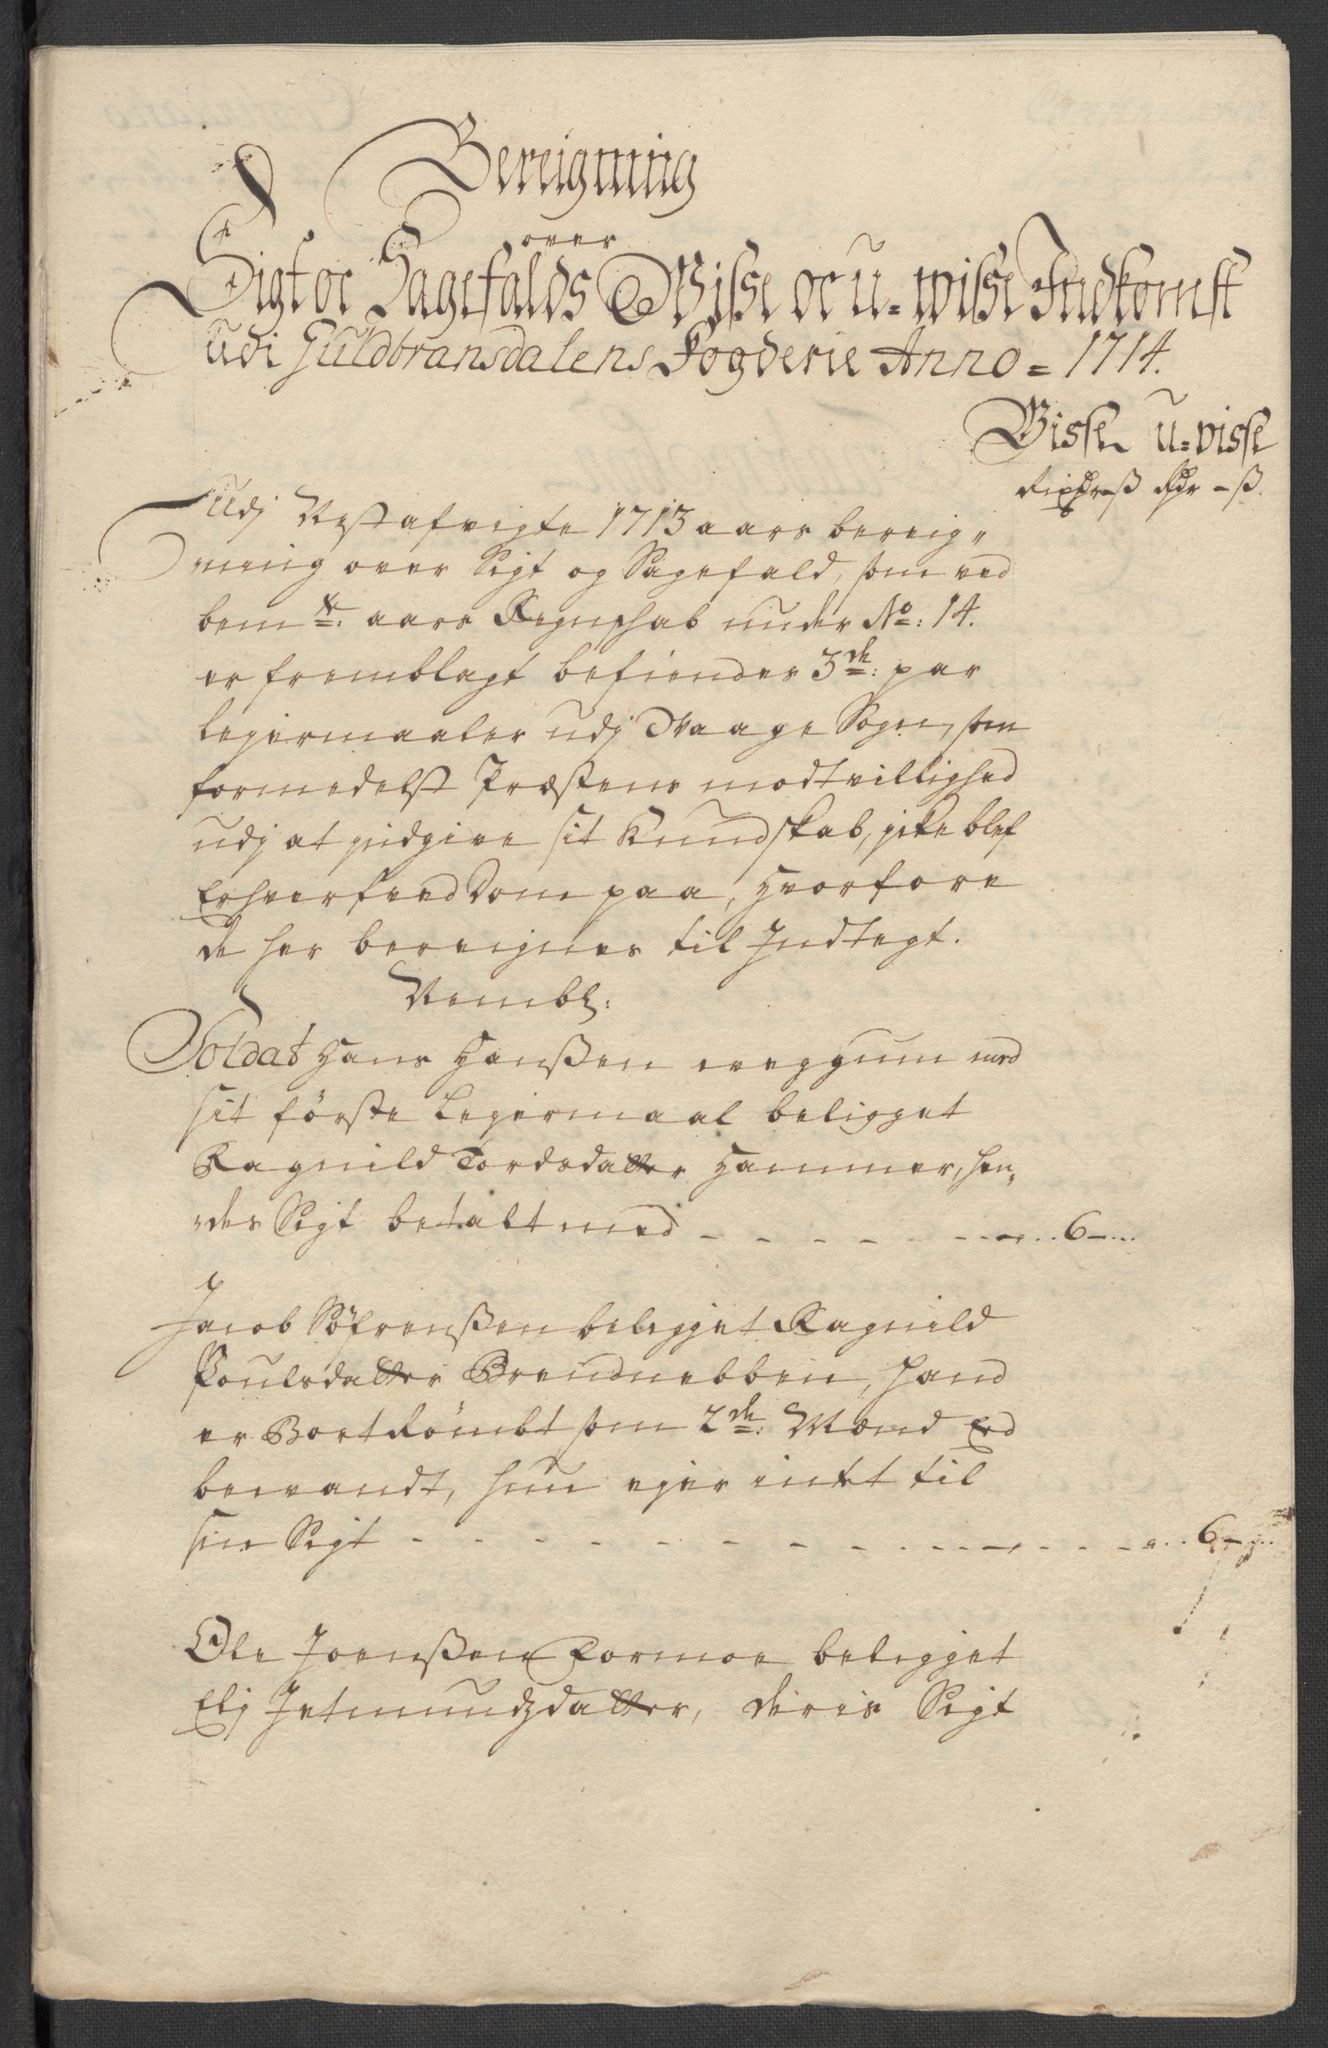 Bereigning
over
Sigt oc Sagefalds Wisse oc u=wisse Indkomst
udi Guldbransdalens Fogderie Anno = 1714.
Visse u=visse
Rixdr - ß Rdr - ß.
Udj Nest afvigte 1713 aars bereig„
ning over Sigt og Sagefald, som ved
bemte: aars Regnschab under No: 14.
er fremblagt befindes 3de: par
Leyermaaler udj Waage Sogn, som
formedelst Præstens modtvillighed
udj at udgive sit Kundskab, icke blef
Erhverfved Dom paa, hvorfore
de her bereignes til Indtegt.
Nembl:
Soldat Hans Hanßen med
sit förste Leyermaal beligget
Ragnild Tordsdatter Hammer, hen„
„des Sigt betalt med - - - - - - 6 - ...
Jacob Söfrenßen beligget Ragnild
Poulsdatter Brendnebben, hand
er Bortrömbt som 2de: Mænd Er
bevandt, hun ejer intet til
sin Sigt - - - - - - - - - 6 - ...
Ole Joenßen Formoe beligget
Elj Jetmundzdatter, deris Sigt